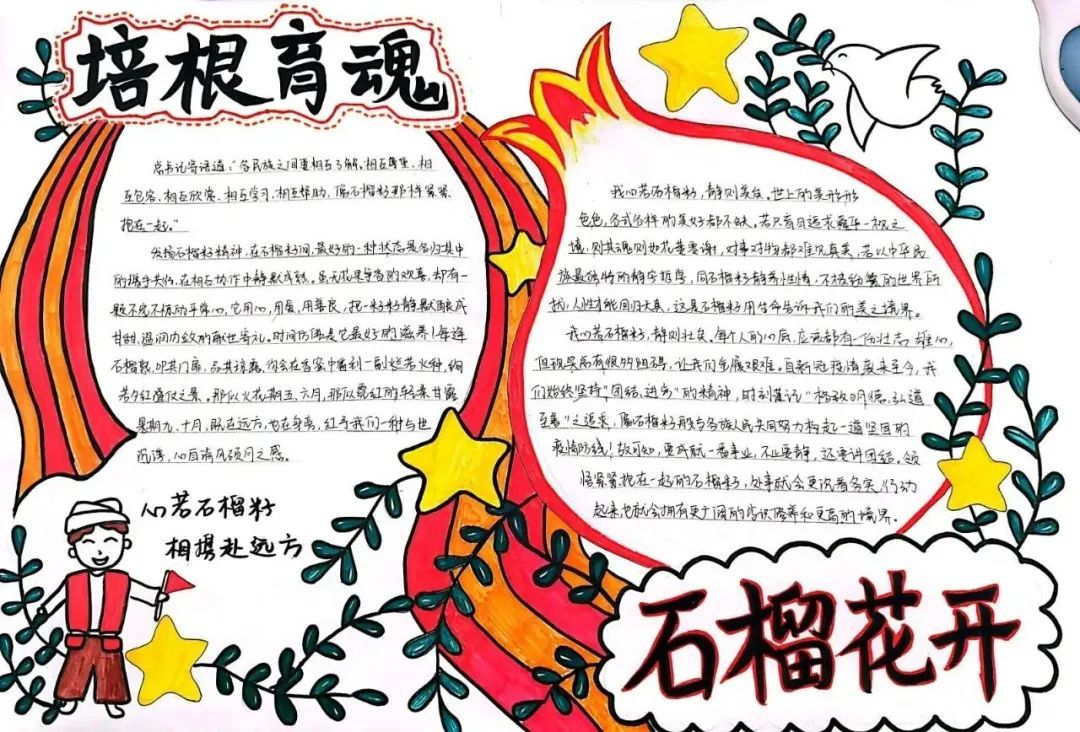 培根育魂
总书记寄语道:“各民族之间要相互了解、相互尊重、相
互包容、相互欣赏、相互学习、相互帮助、像石榴籽那样紧紧
抱在一起。”
发扬石榴籽精神,在石榴籽间,最好的一种状态是各归其中
的携手共伤,在相互协作中静默成熟。虽无花果争春的欢喜,却有一
颗不宠不惊的平常心,它用心,用爱,用善良,把一籽籽静默酿成
甘甜,温润
时间仿佛是它最好的滋养!每逢
石榴
若夕红霞似之景。那似火花期五、六月,那似霞红的轻柔甘露
果期九、十月,既在远方,也在身旁,红予我们一种与世
沉浮,心自清风皎月之感。
心若石榴籽
相携赴远方
我心若石榴籽,静则美丽。世上的美形形
色色,各式各样的美好都不缺。若只盲目追求
一极之
境,则其魂则如花萎枯谢,对事对物都难见真美,若以中华民
族最独特的静安哲学,同石榴籽静养性情,不搭纷繁的世界所
扰,人性才能回归大真,这是石榴籽用生命告诉我们的美之境界。
我心若石榴籽,静则壮矣。每个人的心后,应该都有一份壮志雄心,
但现实总有很多阻碍,让我们步履艰难。自新冠疫情袭来至今,我
们始终坚持“团结、进步”的精神,时刻谨记“格致明德,弘道
至善”之追求,像石榴籽般与各族人民共同努力构起一道坚固的
疫情防线!故可知,要成就一番事业,不止要静,还要讲团结。领
悟紧紧抱在一起的石榴籽,处事就会更沉着务实,行动
起来,也就会拥有更广阔的
和更高的境界。
石榴花开